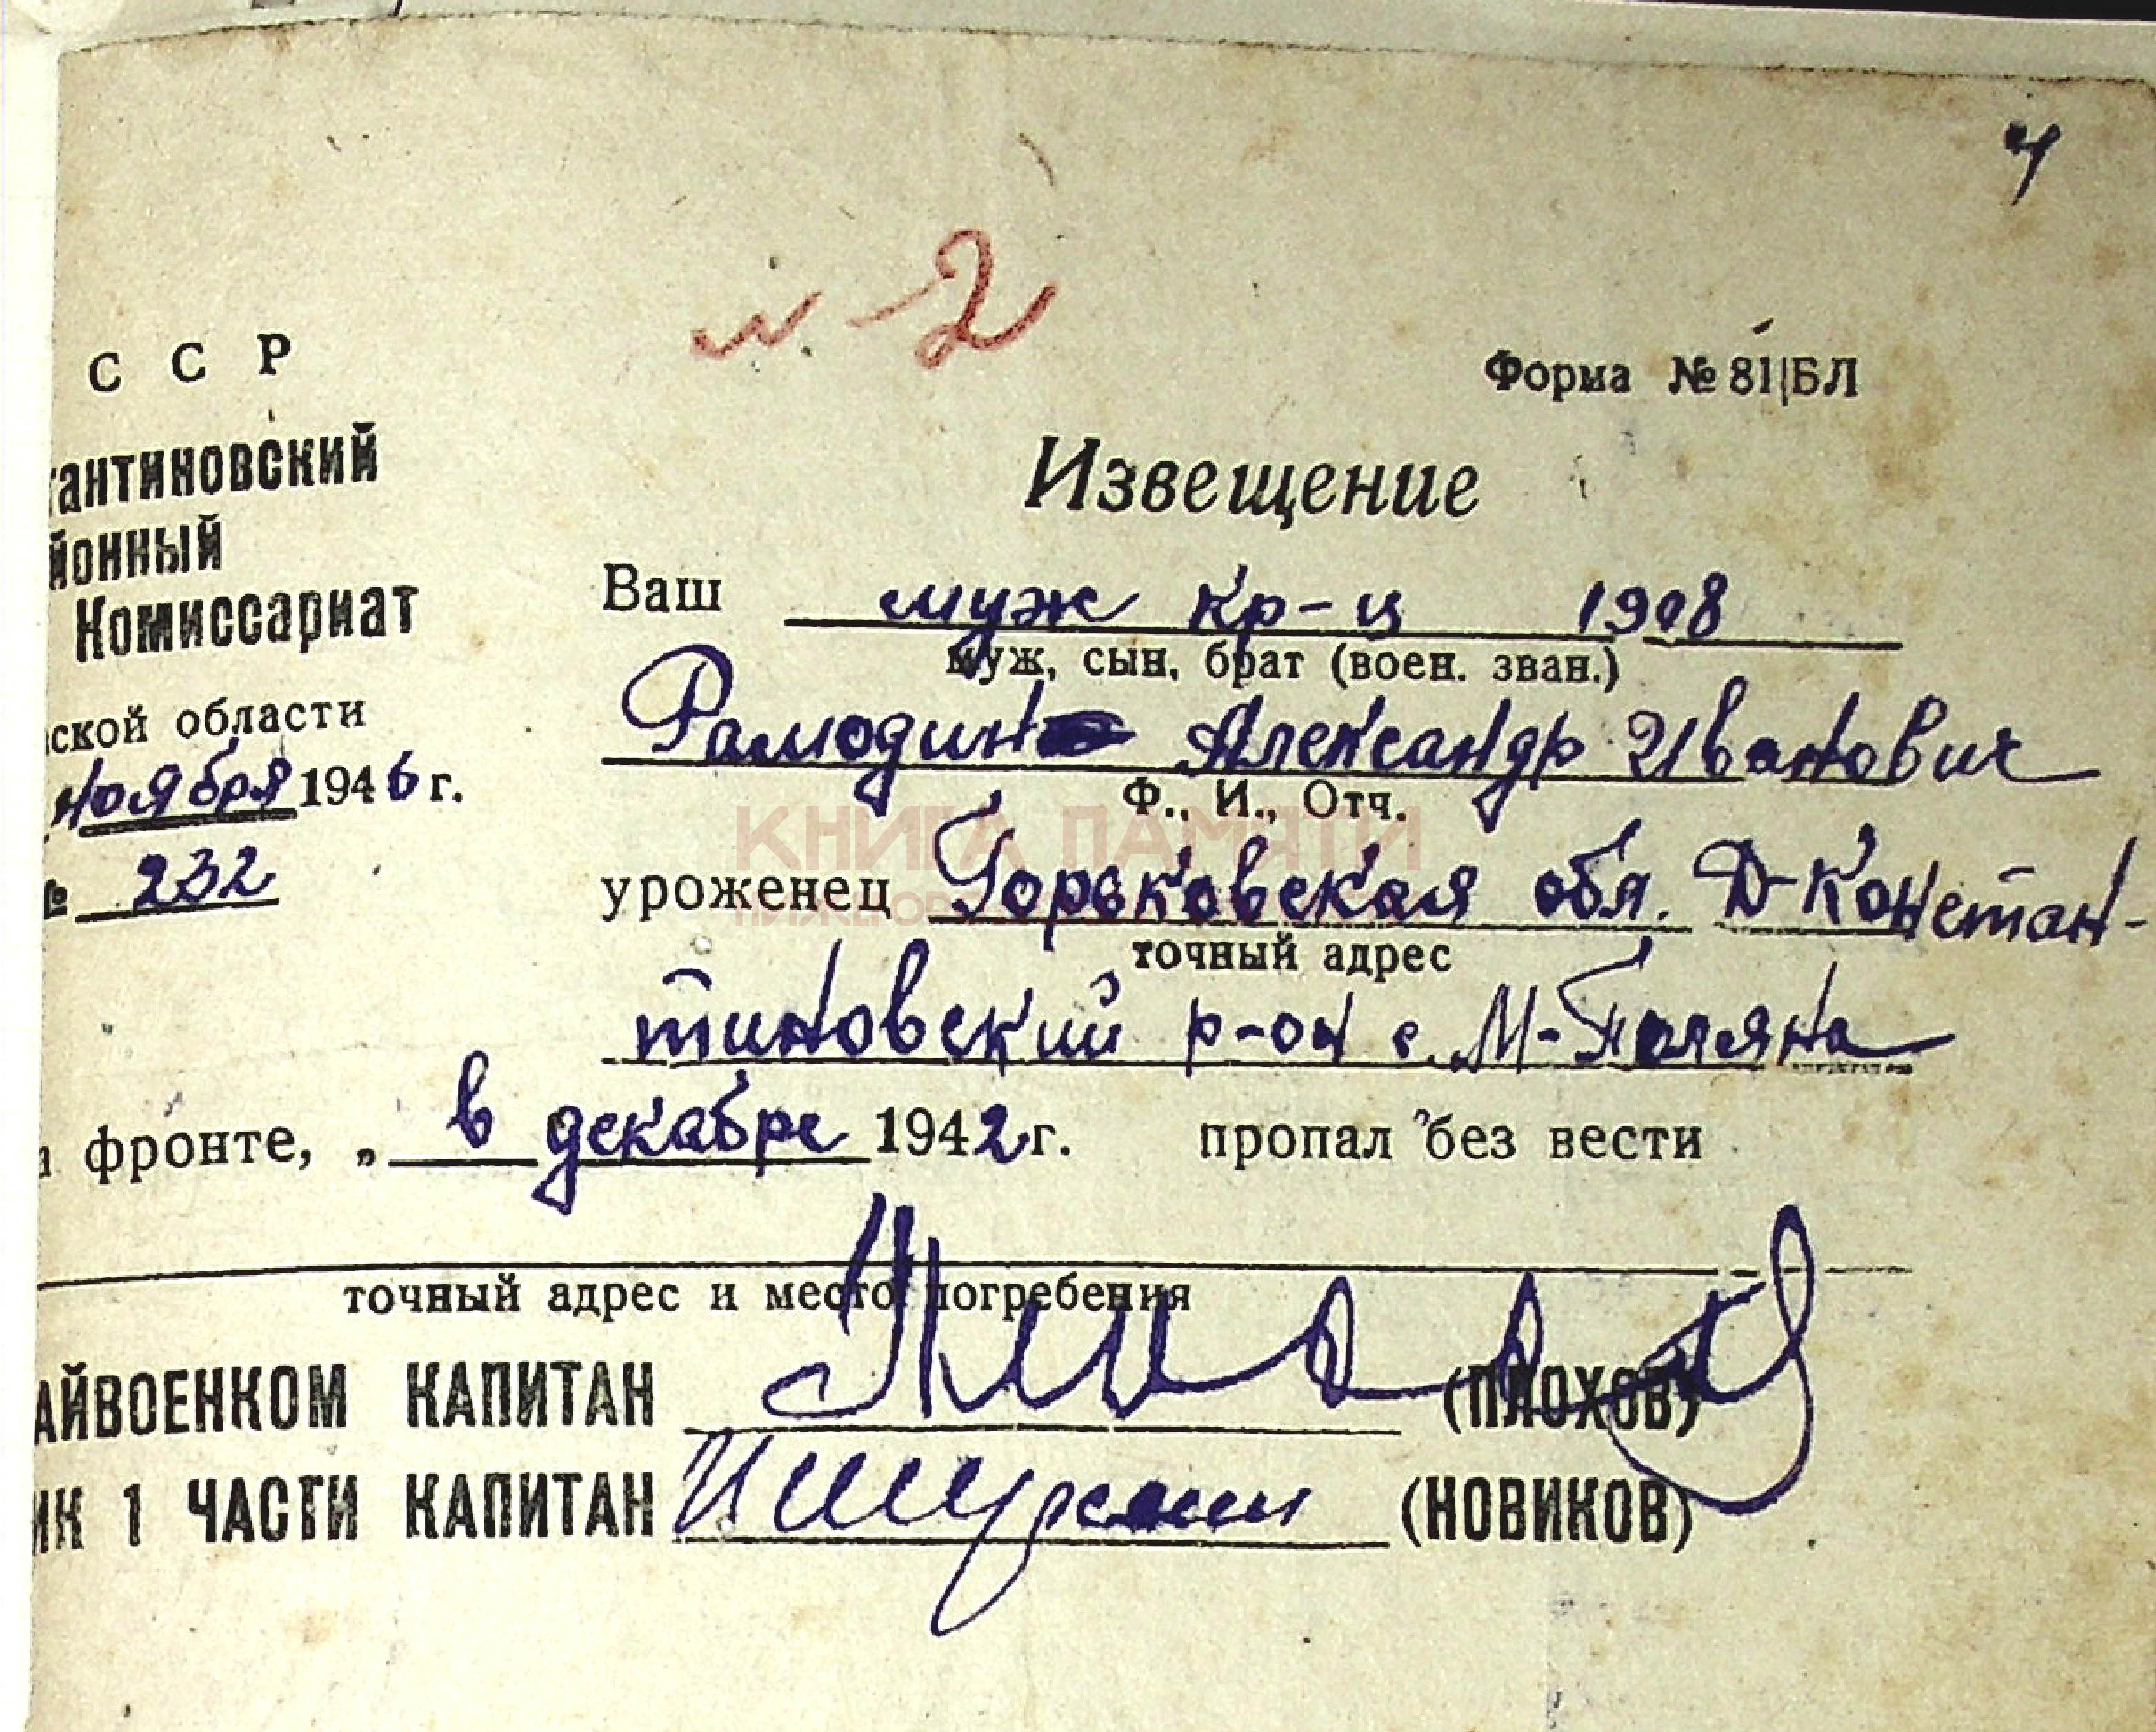 4
№ 2
С С Р
Форма № 81|БЛ
антиновский
Извещение
йонный
Ваш муж кр-ц 1908
Комиссариат
муж, сын, брат (воен. зван.)
ской области
Рамодин Александр Иванович
ноября 1946 г.
Ф., И., Отч.
КНИГА ПАМЯТИ
№ 232
уроженец Горьковская обл. Д-Констан-
точный адрес
тиновский р-он с. М-Поляна
фронте, „ в декабре 1942 г. пропал без вести
точный адрес и место погребения
АЙВОЕНКОМ КАПИТАН (ПЛОХОВ)
ИК 1 ЧАСТИ КАПИТАН (НОВИКОВ)